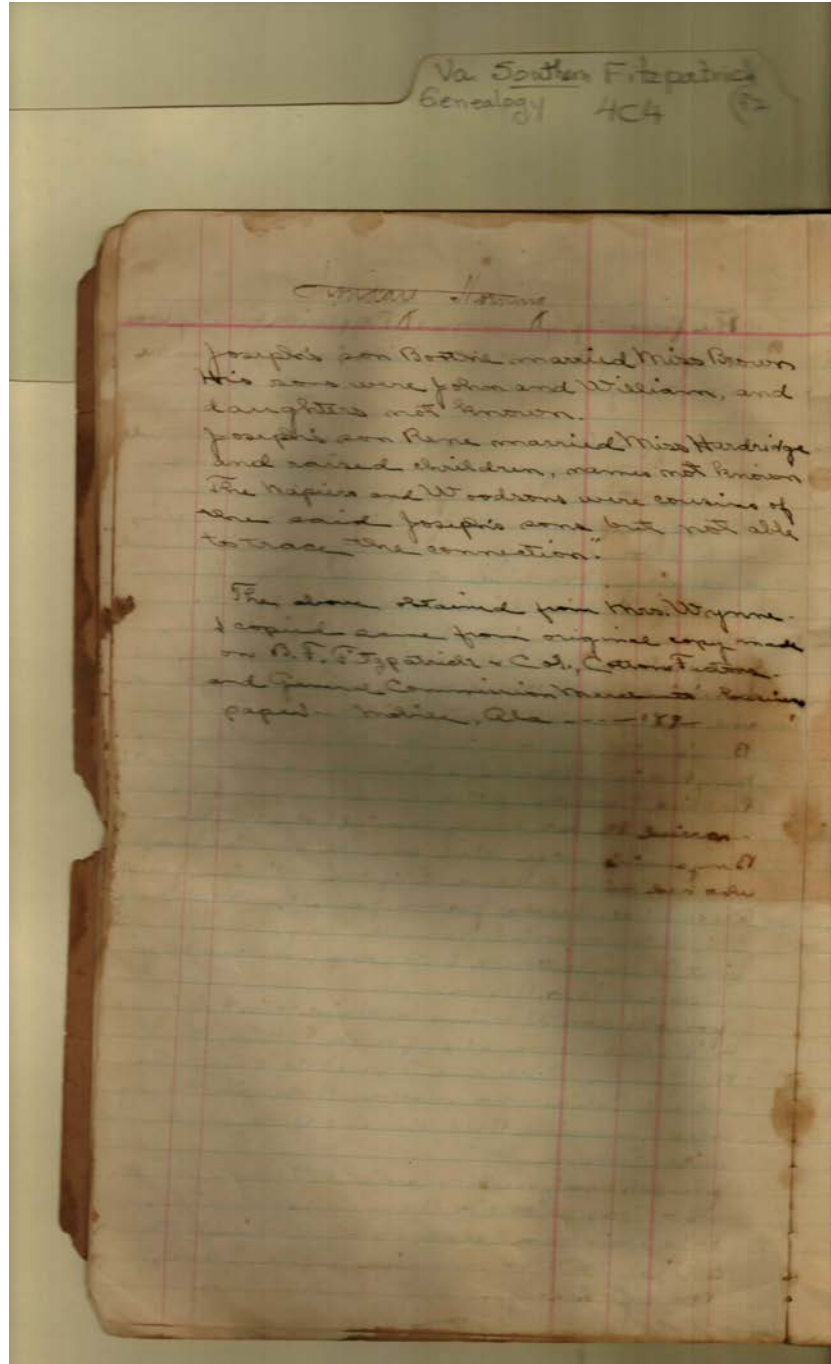 Va. Southern Fitzpatrick
Genealogy 4C4
Joseph's son Bootne married Miss Brown
His sons were John and William, and
daughters not known.
Joseph's son Rene married Miss Hardridge
and raised children, names not known
The Napiers and Woodsons were cousins of
the said Joseph's sons but not able
to trace the connection."
The above obtained from Mrs. Wynne.
I copied same from original copy made
on B. F. Fitzpatrick & Co's., Cotton Factors
and General Commission Merchants' Business
paper - Mobile, Ala ---- 188